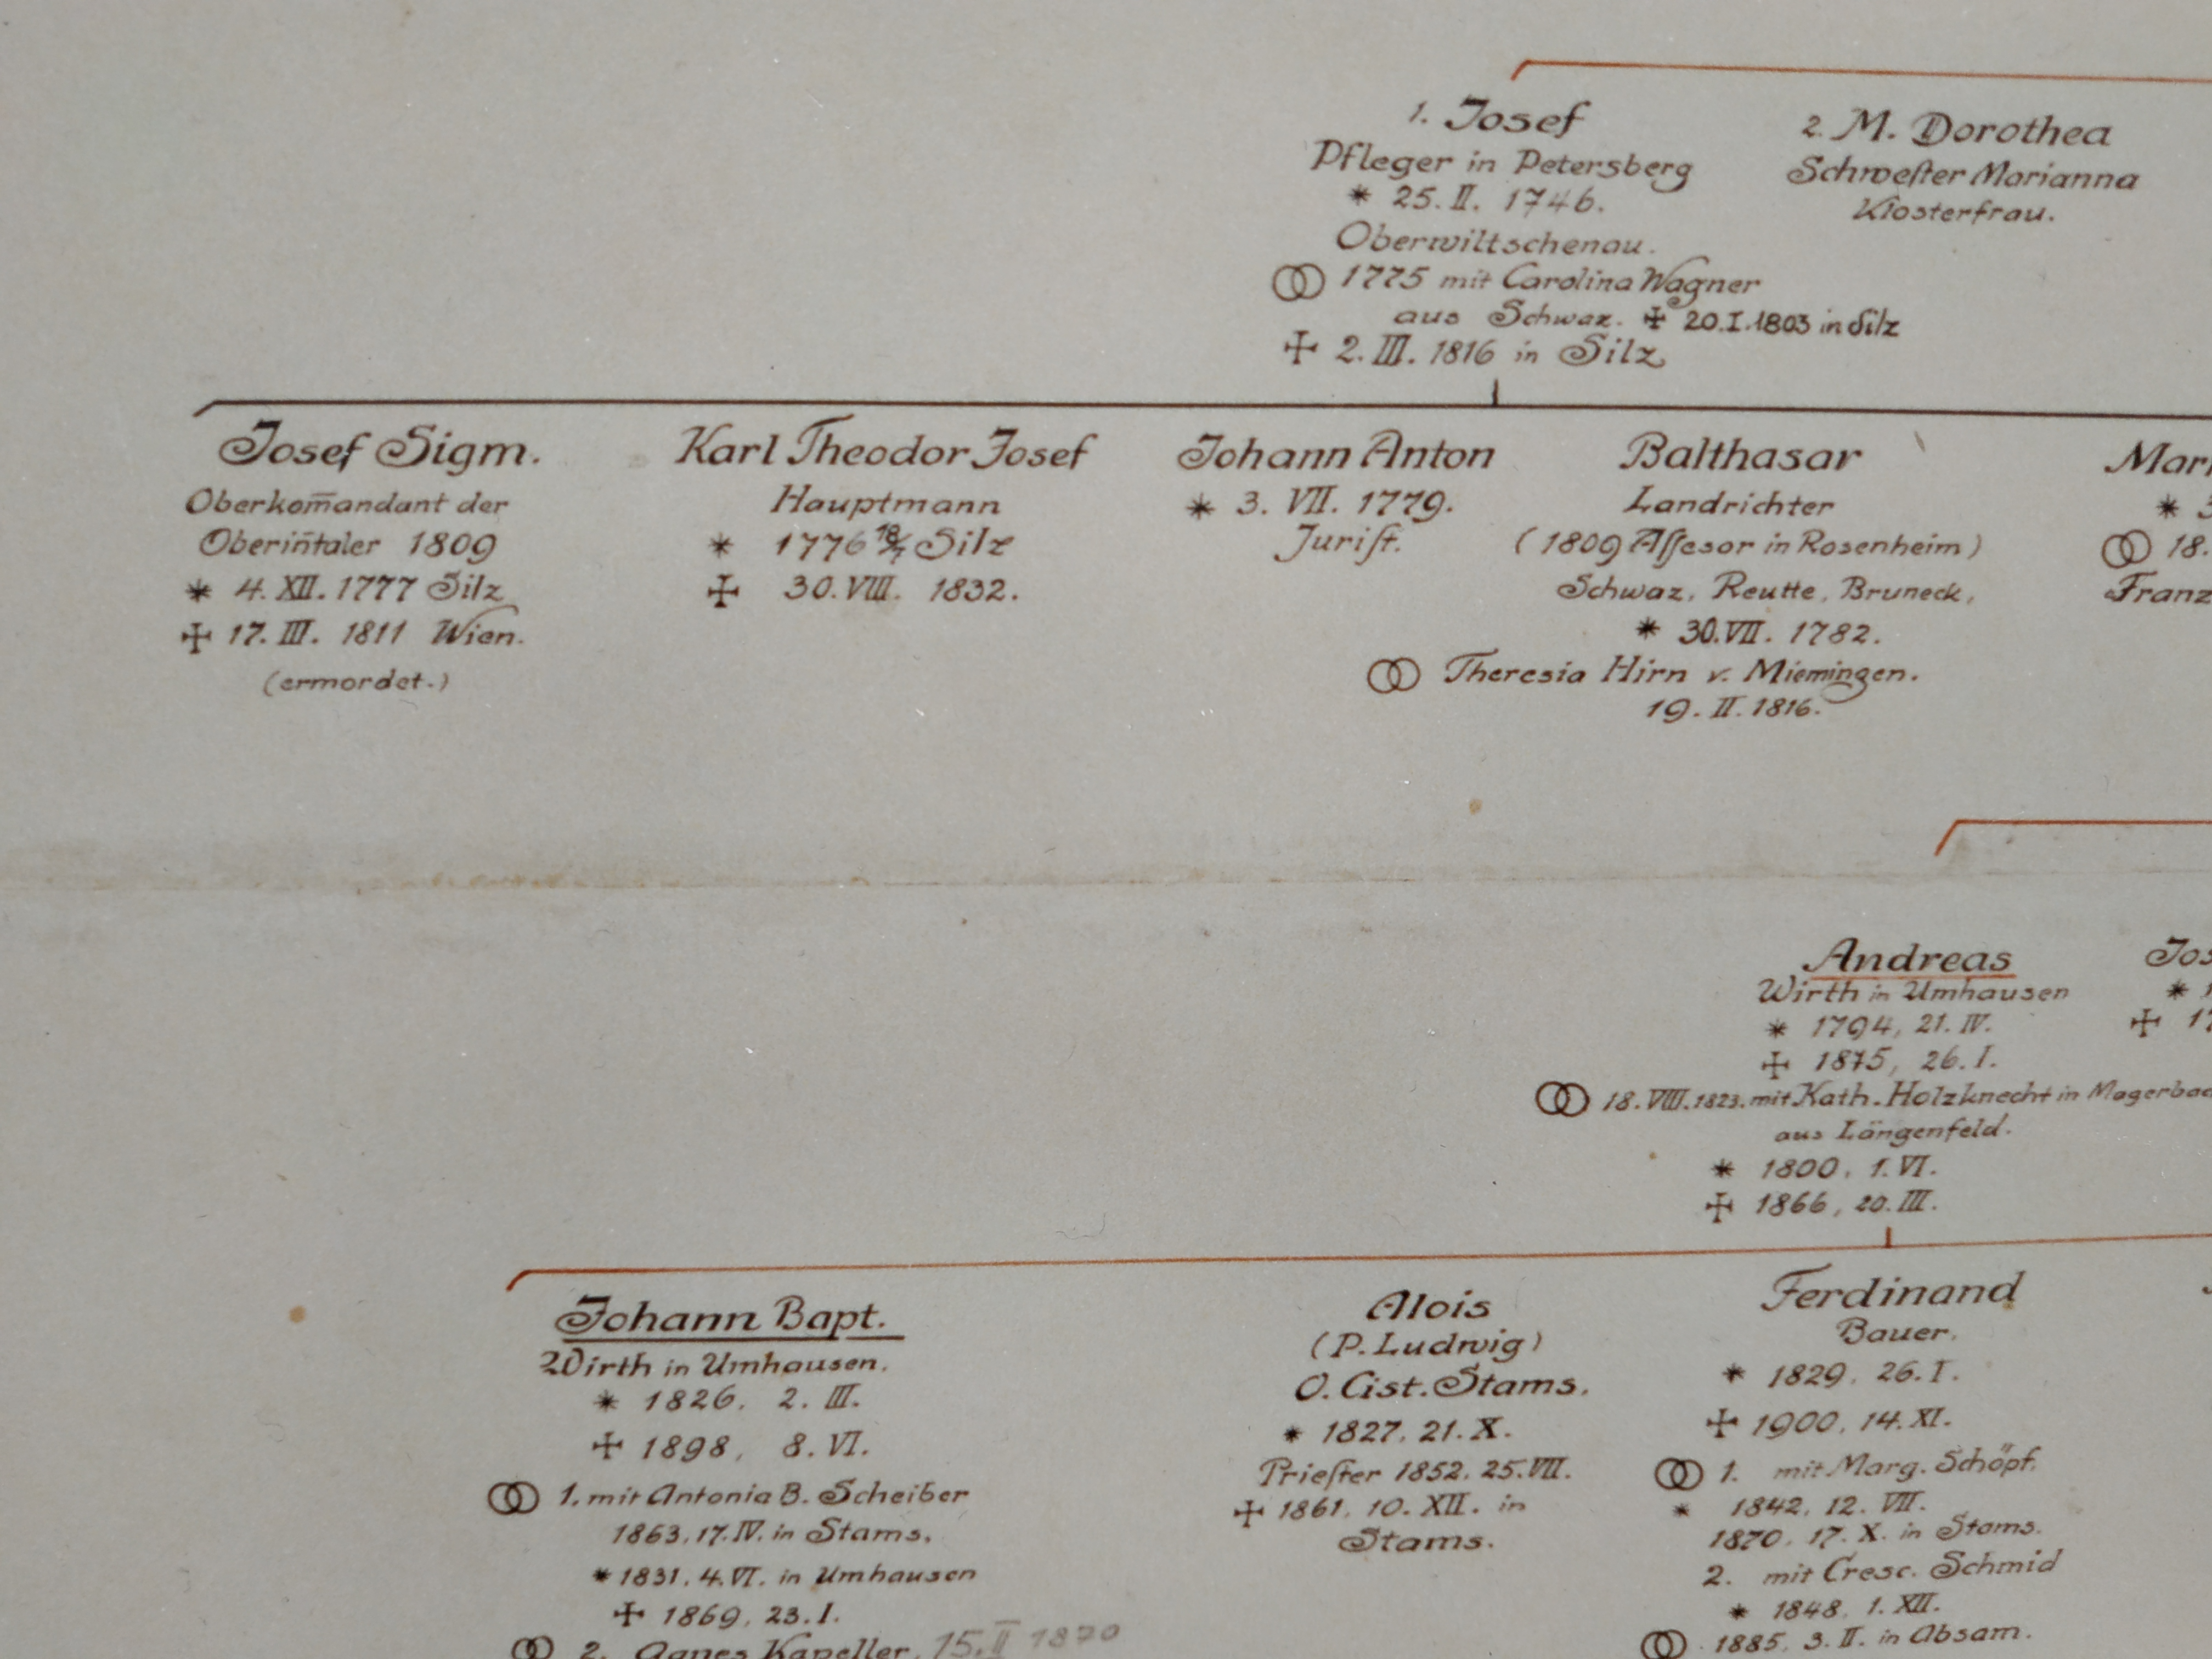 1. Josef
Pfleger in Petersberg
* 25. II. 1746.
Oberwiltschenau.
⚭ 1775 mit Carolina Wagner
aus Schwaz. ✠ 20.I.1803 in Silz
✠ 2. III. 1816 in Silz
2. M. Dorothea
Schwester Marianna
Klosterfrau.
Josef Sigm.
Oberkom̄andant der
Oberin̄taler 1809
* 4. XII. 1777 Silz
✠ 17. III. 1811 Wien.
(ermordet.)
Karl Theodor Josef
Hauptmann
* 1776 18/7 Silz
✠ 30. VIII. 1832.
Johann Anton
* 3. VII. 1779.
Jurist.
Balthasar
Landrichter
(1809 Assesor in Rosenheim)
Schwaz, Reutte, Bruneck,
* 30. VII. 1782.
⚭ Theresia Hirn v. Miemingen.
19. II. 1816.
* 3
⚭ 18.
Franz
Andreas
Wirth in Umhausen
* 1794, 21. IV.
✠ 1875, 26. I.
⚭ 18. VIII. 1823. mit Kath. Holzknecht in Magerbac
aus Längenfeld.
* 1800, 1. VI.
✠ 1866, 20. III.
Jos
* 1
✠ 17
Johann Bapt.
Wirth in Umhausen.
* 1826, 2. III.
✠ 1898, 8. VI.
⚭ 1. mit Antonia B. Scheiber
1863, 17. IV. in Stams.
* 1831, 4. VI. in Umhausen
✠ 1869, 23. I.
⚭ 2. Agnes Kapeller, 15. II 1870
Alois
(P. Ludwig)
O. Cist. Stams.
* 1827, 21. X.
Priester 1852, 25. VII.
✠ 1861, 10. XII. in
Stams.
Ferdinand
Bauer.
* 1829, 26. I.
✠ 1900, 14. XI.
⚭ 1. mit Marg. Schöpf.
* 1842, 12. VII.
1870, 17. X. in Stams.
2. mit Cresc. Schmid
* 1848, 1. XII.
⚭ 1885, 3. II. in Absam.